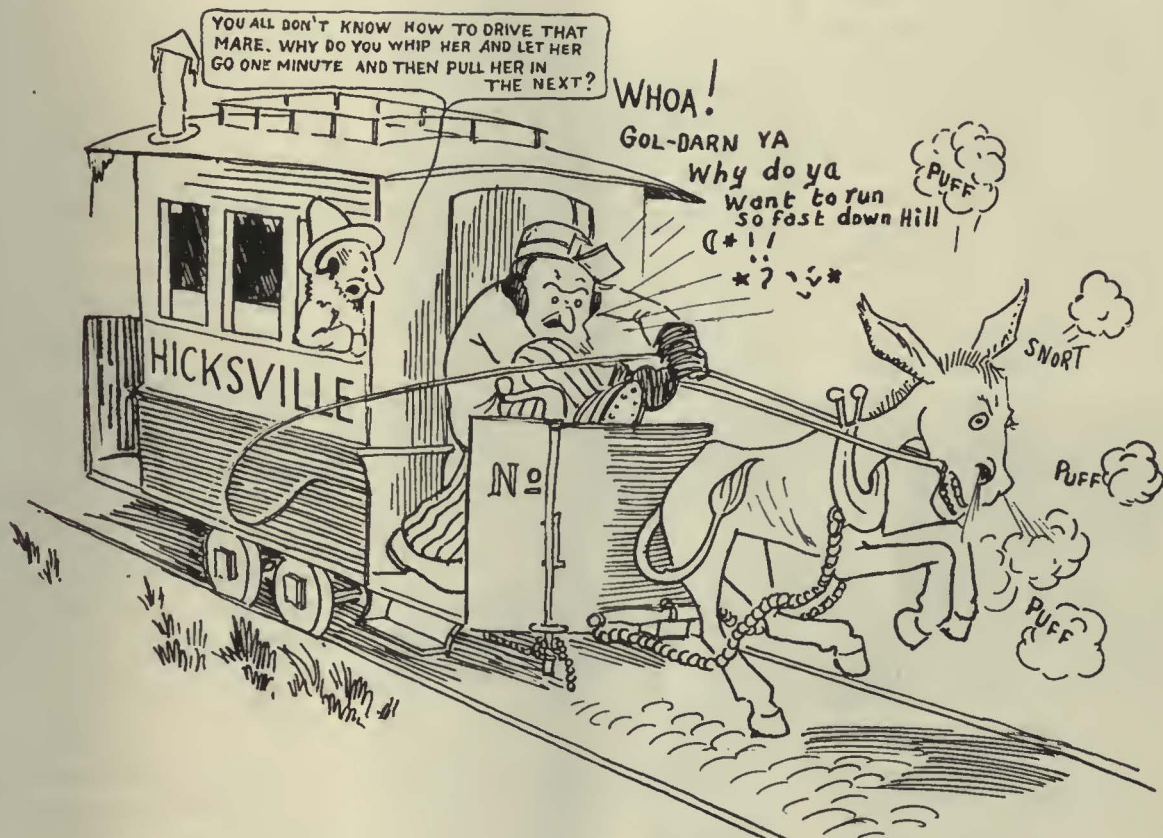 YOU ALL DON'T KNOW HOW TO DRIVE THAT
MARE. WHY DO YOU WHIP HER AND LET HER
GO ONE MINUTE AND THEN PULL HER IN
THE NEXT?
WHOA!
GOL-DARN YA
Why do ya
want to run
so fast down Hill
PUFF
SNORT
HICKSVILLE
No
PUFF
PUFF